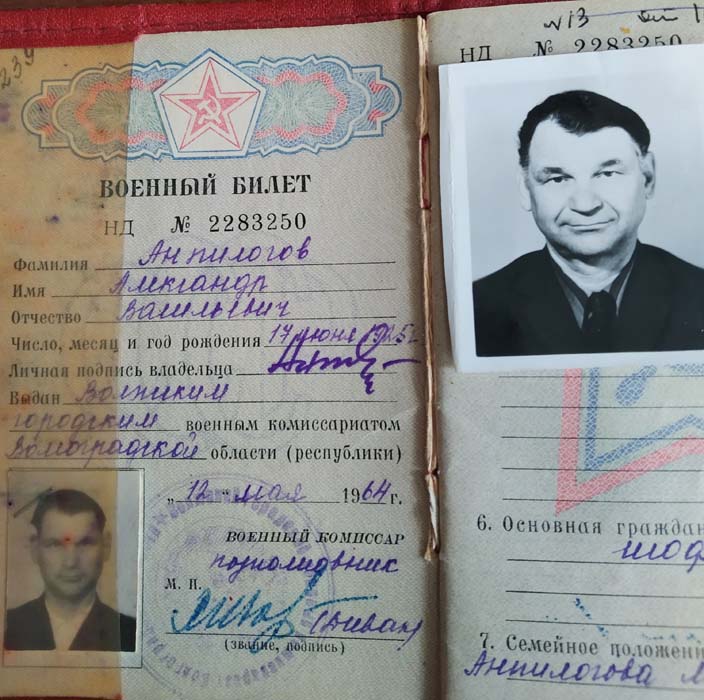 239
ВОЕННЫЙ БИЛЕТ
НД № 2283250
Фамилия Анпилогов
Имя Александр
Отчество Васильевич
Число, месяц и год рождения 17 июня 1925г.
Личная подпись владельца
Выдан Волжским
городским военным комиссариатом
Волгоградской области (республики)
„12" мая 1964 г.
ВОЕННЫЙ КОМИССАР
подполковник
М. П.
(звание, подпись)
№13
НД № 2283250
6. Основная граждан
шоф
7. Семейное положени
Анпилогова М